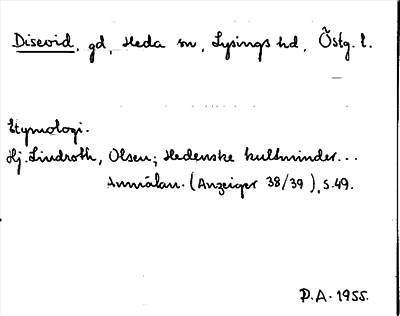 Disevid, gd, Heda sn, Lysings hd, Östg. l.
Etymologi.
Hj. Lindroth, Olsen; Hedenske kultminder...
Anmälan. (Anzeiger 38/39), s. 49.
P.A. 1955.